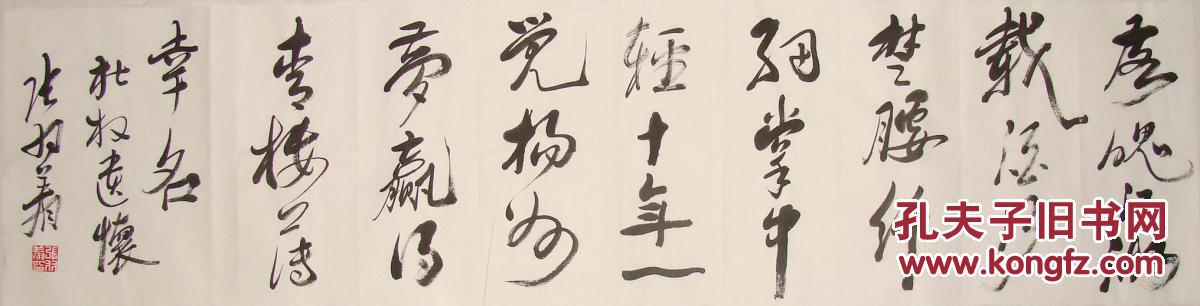 落魄江湖
載酒行
楚腰纤
細掌中
輕十年一
觉揚州
夢贏得
青楼薄
幸名
杜牧遣懷
孔夫子旧书网
www.kongfz.com